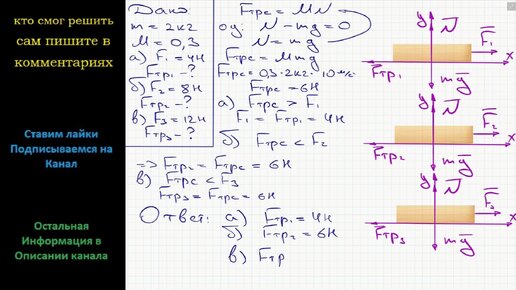 кто смог решить
сам пишите в
комментариях
Ставим лайки
Подписываемся на
Канал
Остальная
Информация в
Описании канала
Дано
m = 2кг
M = 0,3
а) F₁ = 4Н
Fтр₁ - ?
б) F₂ = 8Н
Fтр₂ - ?
в) F₃ = 12Н
Fтр₃ - ?
Fтрс = MN
oy: N - mg = 0
N = mg
Fтрс = Mmg
Fтрс = 0,3·2кг·10 м/с²
Fтрс = 6Н
а) Fтрс > F₁
F₁ = Fтр₁ = 4Н
б) Fтрс < F₂
=> Fтр₂ = Fтрс = 6Н
в) Fтрс < F₃
Fтр₃ = Fтрс = 6Н
Ответ: а) Fтр₁ = 4Н
б) Fтр₂ = 6Н
в) Fтр
y N F₁
x
Fтр₁ mg
y N F₂
x
Fтр₂ mg
y N F₃
x
Fтр₃ mg